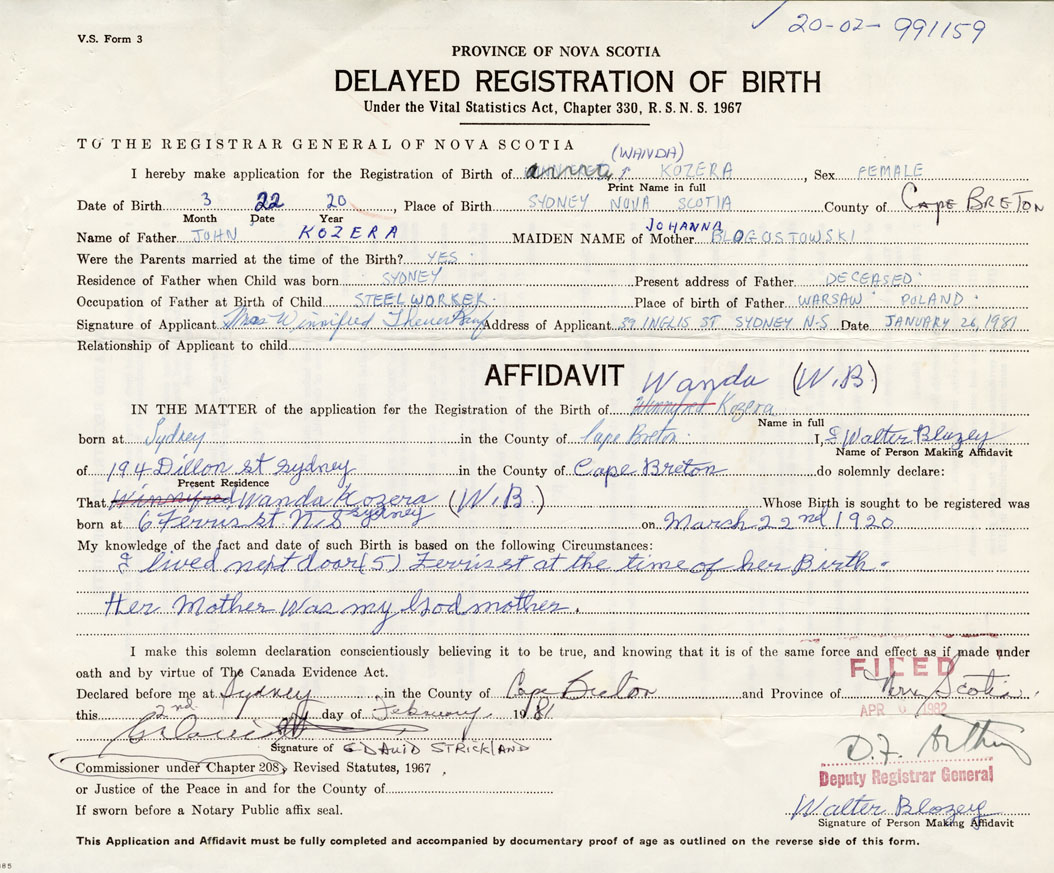 20-02-991159
V.S. Form 3
PROVINCE OF NOVA SCOTIA
DELAYED REGISTRATION OF BIRTH
Under the Vital Statistics Act, Chapter 330, R.S.N.S. 1967
TO THE REGISTRAR GENERAL OF NOVA SCOTIA
(WANDA)
I hereby make application for the Registration of Birth of KOZERA, Sex FEMALE
Print Name in full
Date of Birth 3 22 20, Place of Birth SYDNEY NOVA SCOTIA County of CAPE BRETON
Month Date Year
JOHANNA
Name of Father JOHN KOZERA MAIDEN NAME of Mother BLOGOSTOWSKI
Were the Parents married at the time of the Birth? YES
Residence of Father when Child was born SYDNEY Present address of Father DECEASED
Occupation of Father at Birth of Child STEELWORKER Place of birth of Father WARSAW POLAND
Signature of Applicant Mrs Winnifred Address of Applicant 59 INGLIS ST SYDNEY N-S Date JANUARY 26, 1981
Relationship of Applicant to child
AFFIDAVIT Wanda (W.B)
IN THE MATTER of the application for the Registration of the Birth of Winnifred Kozera
Name in full
born at Sydney in the County of Cape Breton I, Walter Blozey
Name of Person Making Affidavit
of 194 Dillon st Sydney in the County of Cape Breton do solemnly declare:
Present Residence
That Winnifred Wanda Kozera (W.B.) Whose Birth is sought to be registered was
born at 6 Ferris st N.S Sydney on March 22nd 1920
My knowledge of the fact and date of such Birth is based on the following Circumstances:
I lived next door (5) Ferris st at the time of her Birth.
Her Mother Was my Godmother.
I make this solemn declaration conscientiously believing it to be true, and knowing that it is of the same force and effect as if made under
oath and by virtue of The Canada Evidence Act.
FILED
Declared before me at Sydney, in the County of Cape Breton and Province of Nova Scotia
this 2nd day of February 1981
APR 1982
Signature of E DAVID STRICKLAND
D.F. Arthur
Commissioner under Chapter 208, Revised Statutes, 1967
Deputy Registrar General
or Justice of the Peace in and for the County of
If sworn before a Notary Public affix seal.
Walter Blozey
Signature of Person Making Affidavit
This Application and Affidavit must be fully completed and accompanied by documentary proof of age as outlined on the reverse side of this form.